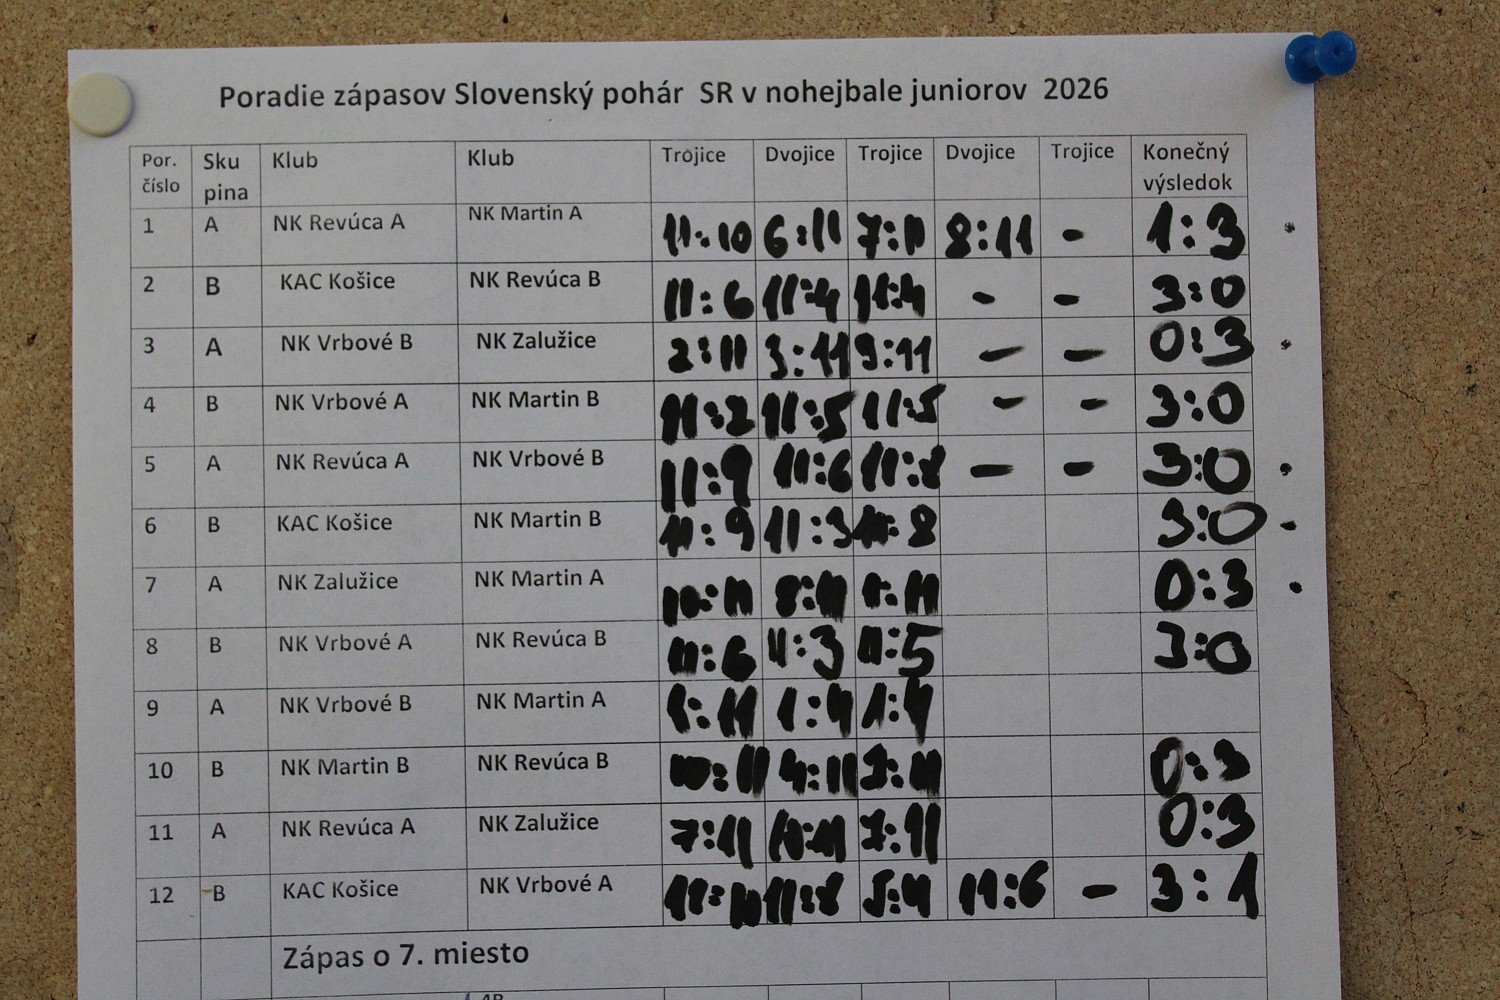 Poradie zápasov Slovenský pohár SR v nohejbale juniorov 2026
Por. číslo Sku pina Klub Klub Trojice Dvojice Trojice Dvojice Trojice Konečný výsledok
1 A NK Revúca A NK Martin A 11:10 6:11 7:11 8:11 - 1:3
2 B KAC Košice NK Revúca B 11:6 11:4 11:4 - - 3:0
3 A NK Vrbové B NK Zalužice 2:11 3:11 9:11 - - 0:3
4 B NK Vrbové A NK Martin B 11:2 11:5 11:5 - - 3:0
5 A NK Revúca A NK Vrbové B 11:9 11:6 11:8 - - 3:0
6 B KAC Košice NK Martin B 11:9 11:3 11:8 3:0
7 A NK Zalužice NK Martin A 10:11 8:11 0:3
8 B NK Vrbové A NK Revúca B 11:6 11:3 11:5 3:0
9 A NK Vrbové B NK Martin A
10 B NK Martin B NK Revúca B 10:11 4:11 0:3
11 A NK Revúca A NK Zalužice 7:11 10:11 7:11 0:3
12 B KAC Košice NK Vrbové A 11:10 11:8 5:11 11:6 - 3:1
Zápas o 7. miesto